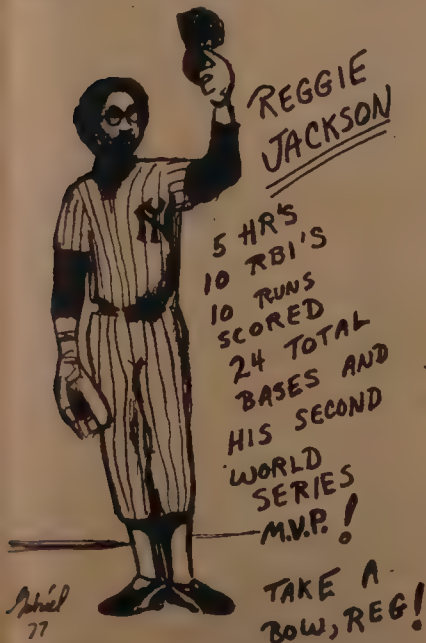 REGGIE
JACKSON
NY
5 HR'S
10 RBI'S
10 RUNS
SCORED
24 TOTAL
BASES AND
HIS SECOND
WORLD
SERIES
M.V.P.!
TAKE A
BOW, REG!
77